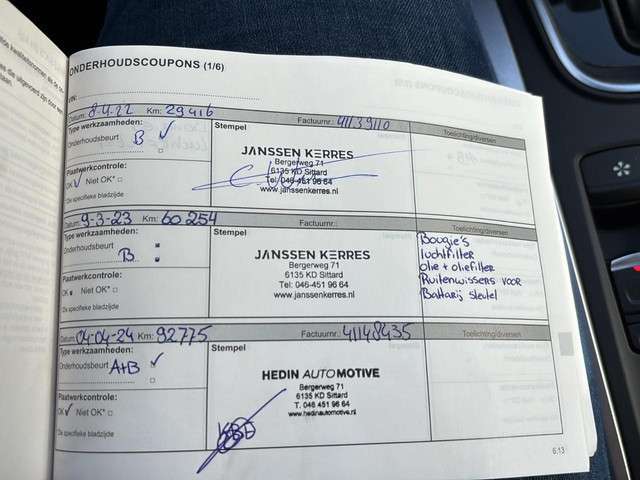 ONDERHOUDSCOUPONS (1/6)
VIN:
Datum: 8-4-22 Km: 29416 Factuurnr.: 41139110 Toelichting/diversen
Type werkzaamheden:
Onderhoudsbeurt B ✓
Plaatwerkcontrole:
OK ✓ Niet OK* □
*Zie specifieke bladzijde
Stempel
JANSSEN KERRES
Bergerweg 71
6135 KD Sittard
Tel: 046-451 96 64
www.janssenkerres.nl
Datum: 9-3-23 Km: 60 254 Factuurnr.: Toelichting/diversen
Type werkzaamheden:
Onderhoudsbeurt B
Plaatwerkcontrole:
OK Niet OK* □
*Zie specifieke bladzijde
Stempel
JANSSEN KERRES
Bergerweg 71
6135 KD Sittard
Tel: 046-451 96 64
www.janssenkerres.nl
Bougie's
luchtfilter
olie + oliefilter
Ruitenwissers voor
Batterij sleutel
Datum: 04-04-24 Km: 92775 Factuurnr.: 41148435 Toelichting/diversen
Type werkzaamheden:
Onderhoudsbeurt A+B ✓
Plaatwerkcontrole:
OK ✓ Niet OK* □
*Zie specifieke bladzijde
Stempel
HEDIN AUTOMOTIVE
Bergerweg 71
6135 KD Sittard
T. 046 451 96 64
www.hedinautomotive.nl
6.13